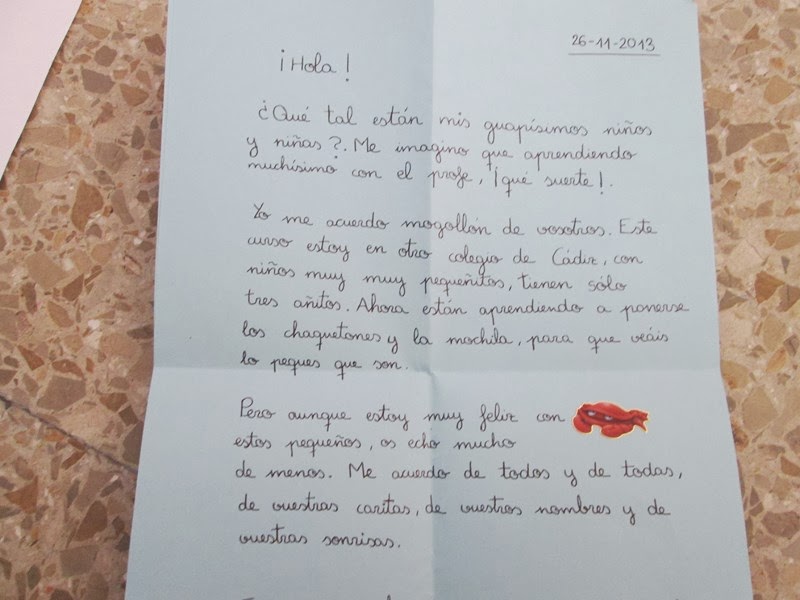 26-11-2013
¡Hola!
¿Qué tal están mis guapísimos niños
y niñas?. Me imagino que aprendiendo
muchísimo con el profe, ¡qué suerte!.
Yo me acuerdo mogollón de vosotros. Este
curso estoy en otro colegio de Cádiz, con
niños muy muy pequeñitos, tienen sólo
tres añitos. Ahora están aprendiendo a ponerse
los chaquetones y la mochila, para que veáis
lo peques que son.
Pero aunque estoy muy feliz con
estos pequeños, os echo mucho
de menos. Me acuerdo de todos y de todas,
de vuestras caritas, de vuestros nombres y de
vuestras sonrisas.